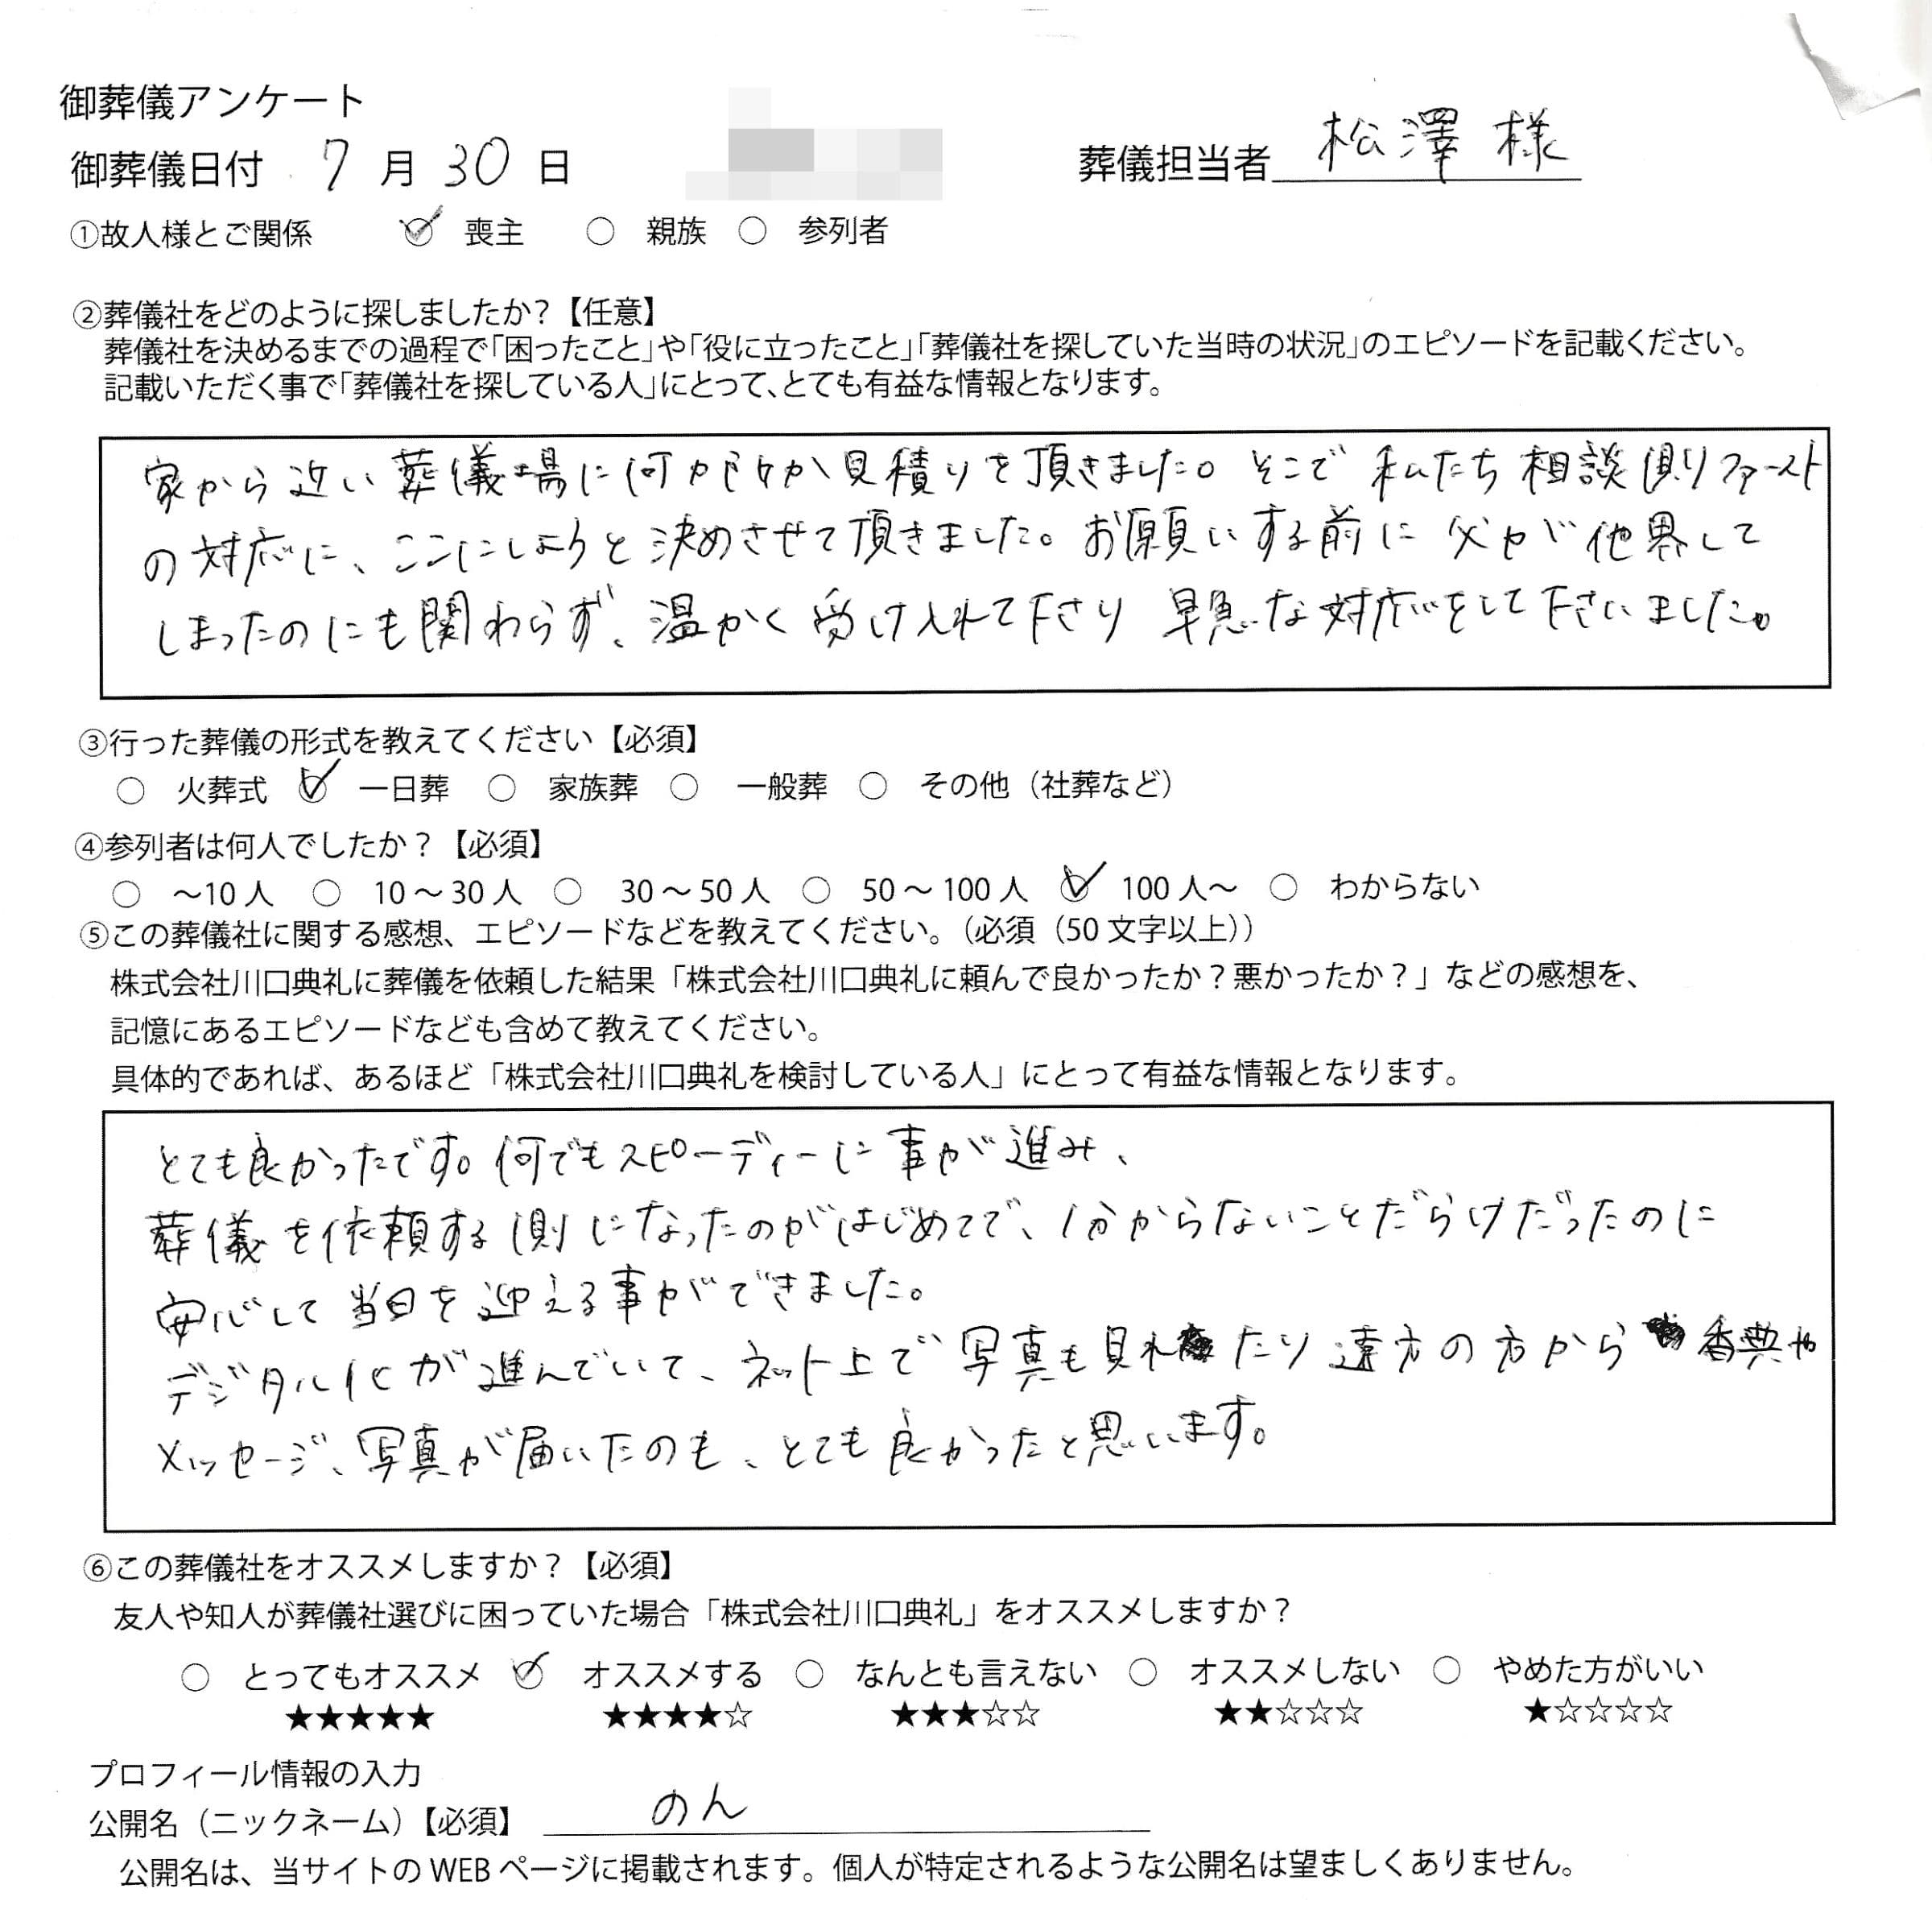 御葬儀アンケート
御葬儀日付 7 月 30 日 葬儀担当者 松澤 様
①故人様とご関係 喪主 ○ 親族 ○ 参列者
②葬儀社をどのように探しましたか?【任意】
葬儀社を決めるまでの過程で「困ったこと」や「役に立ったこと」「葬儀社を探していた当時の状況」のエピソードを記載ください。
記載いただく事で「葬儀社を探している人」にとって、とても有益な情報となります。
家から近い葬儀場に何か所か見積りを頂きました。そこで私たち相談側ファースト
の対応に、ここにしようと決めさせて頂きました。お願いする前に父が他界して
しまったのにも関わらず、温かく受け入れて下さり早急な対応をして下さいました。
③行った葬儀の形式を教えてください【必須】
○ 火葬式 一日葬 ○ 家族葬 ○ 一般葬 ○ その他（社葬など）
④参列者は何人でしたか？【必須】
○ ～10人 ○ 10～30人 ○ 30～50人 ○ 50～100人 100人～ ○ わからない
⑤この葬儀社に関する感想、エピソードなどを教えてください。（必須（50文字以上））
株式会社川口典礼に葬儀を依頼した結果「株式会社川口典礼に頼んで良かったか？悪かったか？」などの感想を、
記憶にあるエピソードなども含めて教えてください。
具体的であれば、あるほど「株式会社川口典礼を検討している人」にとって有益な情報となります。
とても良かったです。何でもスピーディーに事が進み、
葬儀を依頼する側になったのがはじめてで、分からないことだらけだったのに
安心して当日を迎える事ができました。
デジタル化が進んでいて、ネット上で写真も見れたり遠方の方から香典や
メッセージ、写真が届いたのも、とても良かったと思います。
⑥この葬儀社をオススメしますか？【必須】
友人や知人が葬儀社選びに困っていた場合「株式会社川口典礼」をオススメしますか？
○ とってもオススメ オススメする ○ なんとも言えない ○ オススメしない ○ やめた方がいい
★★★★★ ★★★★☆ ★★★☆☆ ★★☆☆☆ ★☆☆☆☆
プロフィール情報の入力
公開名（ニックネーム）【必須】 のん
公開名は、当サイトのWEBページに掲載されます。個人が特定されるような公開名は望ましくありません。